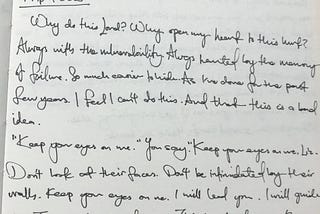 Why do this Lord? Why open my heart to this hurt?
Always with the vulnerability. Always haunted by the memory
of failure. So much easier to hide. As I've done for the past
few years. I feel I can't do this. And that this is a bad
idea.
"Keep your eyes on me." You say. "Keep your eyes on me, Liz.
Don't look at their faces. Don't be intimidated by their
walls. Keep your eyes on me. I will lead you. I will guide